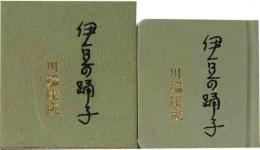 伊豆の踊子
川端康成
伊豆の踊子
川端康成